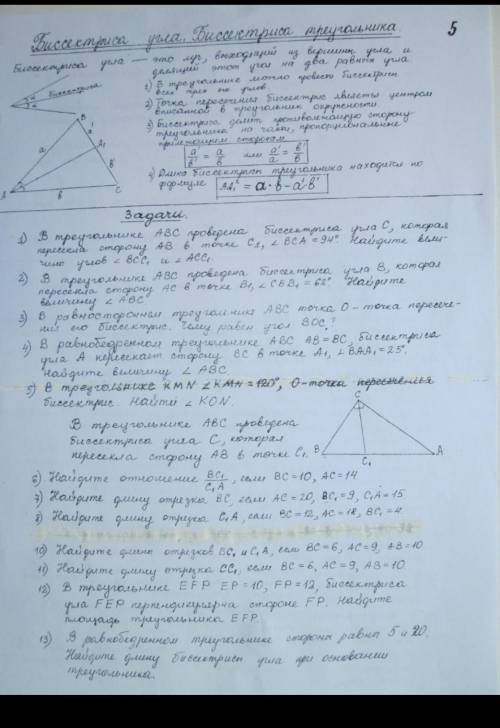 Биссектриса угла. Биссектриса треугольника.
5
Биссектриса угла — это луч, выходящий из вершины угла и
делящий этот угол на два равных угла
Биссектриса
1) В треугольнике можно провести биссектрисы
всех трех его углов.
2) Точка пересечения биссектрис является центром
вписанной в треугольник окружности.
3) Биссектриса делит противолежащую сторону
треугольника на части, пропорциональные
прилежащим сторонам
a'/b' = a/b или a'/a = b'/b
4) Длина биссектрисы треугольника находится по
формуле AA₁² = a·b - a'b'
B
a'
a
A₁
b'
A
b
C
Задачи.
1) В треугольнике ABC проведена биссектриса угла C, которая
пересекла сторону AB в точке C₁, ∠BCA = 94°. Найдите вели-
чину углов ∠BCC₁ и ∠ACC₁.
2) В треугольнике ABC проведена биссектриса угла B, которая
пересекла сторону AC в точке B₁, ∠CBB₁ = 62°. Найдите
величину ∠ABC.
3) В равностороннем треугольнике ABC точка O - точка пересече-
ния его биссектрис. Чему равен угол BOC?
4) В равнобедренном треугольнике ABC AB=BC, биссектриса
угла A пересекает сторону BC в точке A₁, ∠BAA₁ = 25°.
Найдите величину ∠ABC.
5) В треугольнике KMN ∠KMN = 120°, O-точка пересечения
биссектрис. Найти ∠KON.
В треугольнике ABC проведена
биссектриса угла C, которая
пересекла сторону AB в точке C₁.
C
B
C₁
A
6) Найдите отношение BC₁/C₁A, если BC=10, AC=14
7) Найдите длину отрезка BC, если AC=20, BC₁=9, C₁A=15
8) Найдите длину отрезка C₁A, если BC=12, AC=18, BC₁=4
10) Найдите длины отрезков BC₁ и C₁A, если BC=6, AC=9, AB=10
11) Найдите длину отрезка CC₁, если BC=6, AC=9, AB=10
12) В треугольнике EFP EP=10, FP=12, биссектриса
угла FEP перпендикулярна стороне FP. Найдите
площадь треугольника EFP.
13) В равнобедренном треугольнике стороны равны 5 и 20.
Найдите длину биссектрисы угла при основании
треугольника.